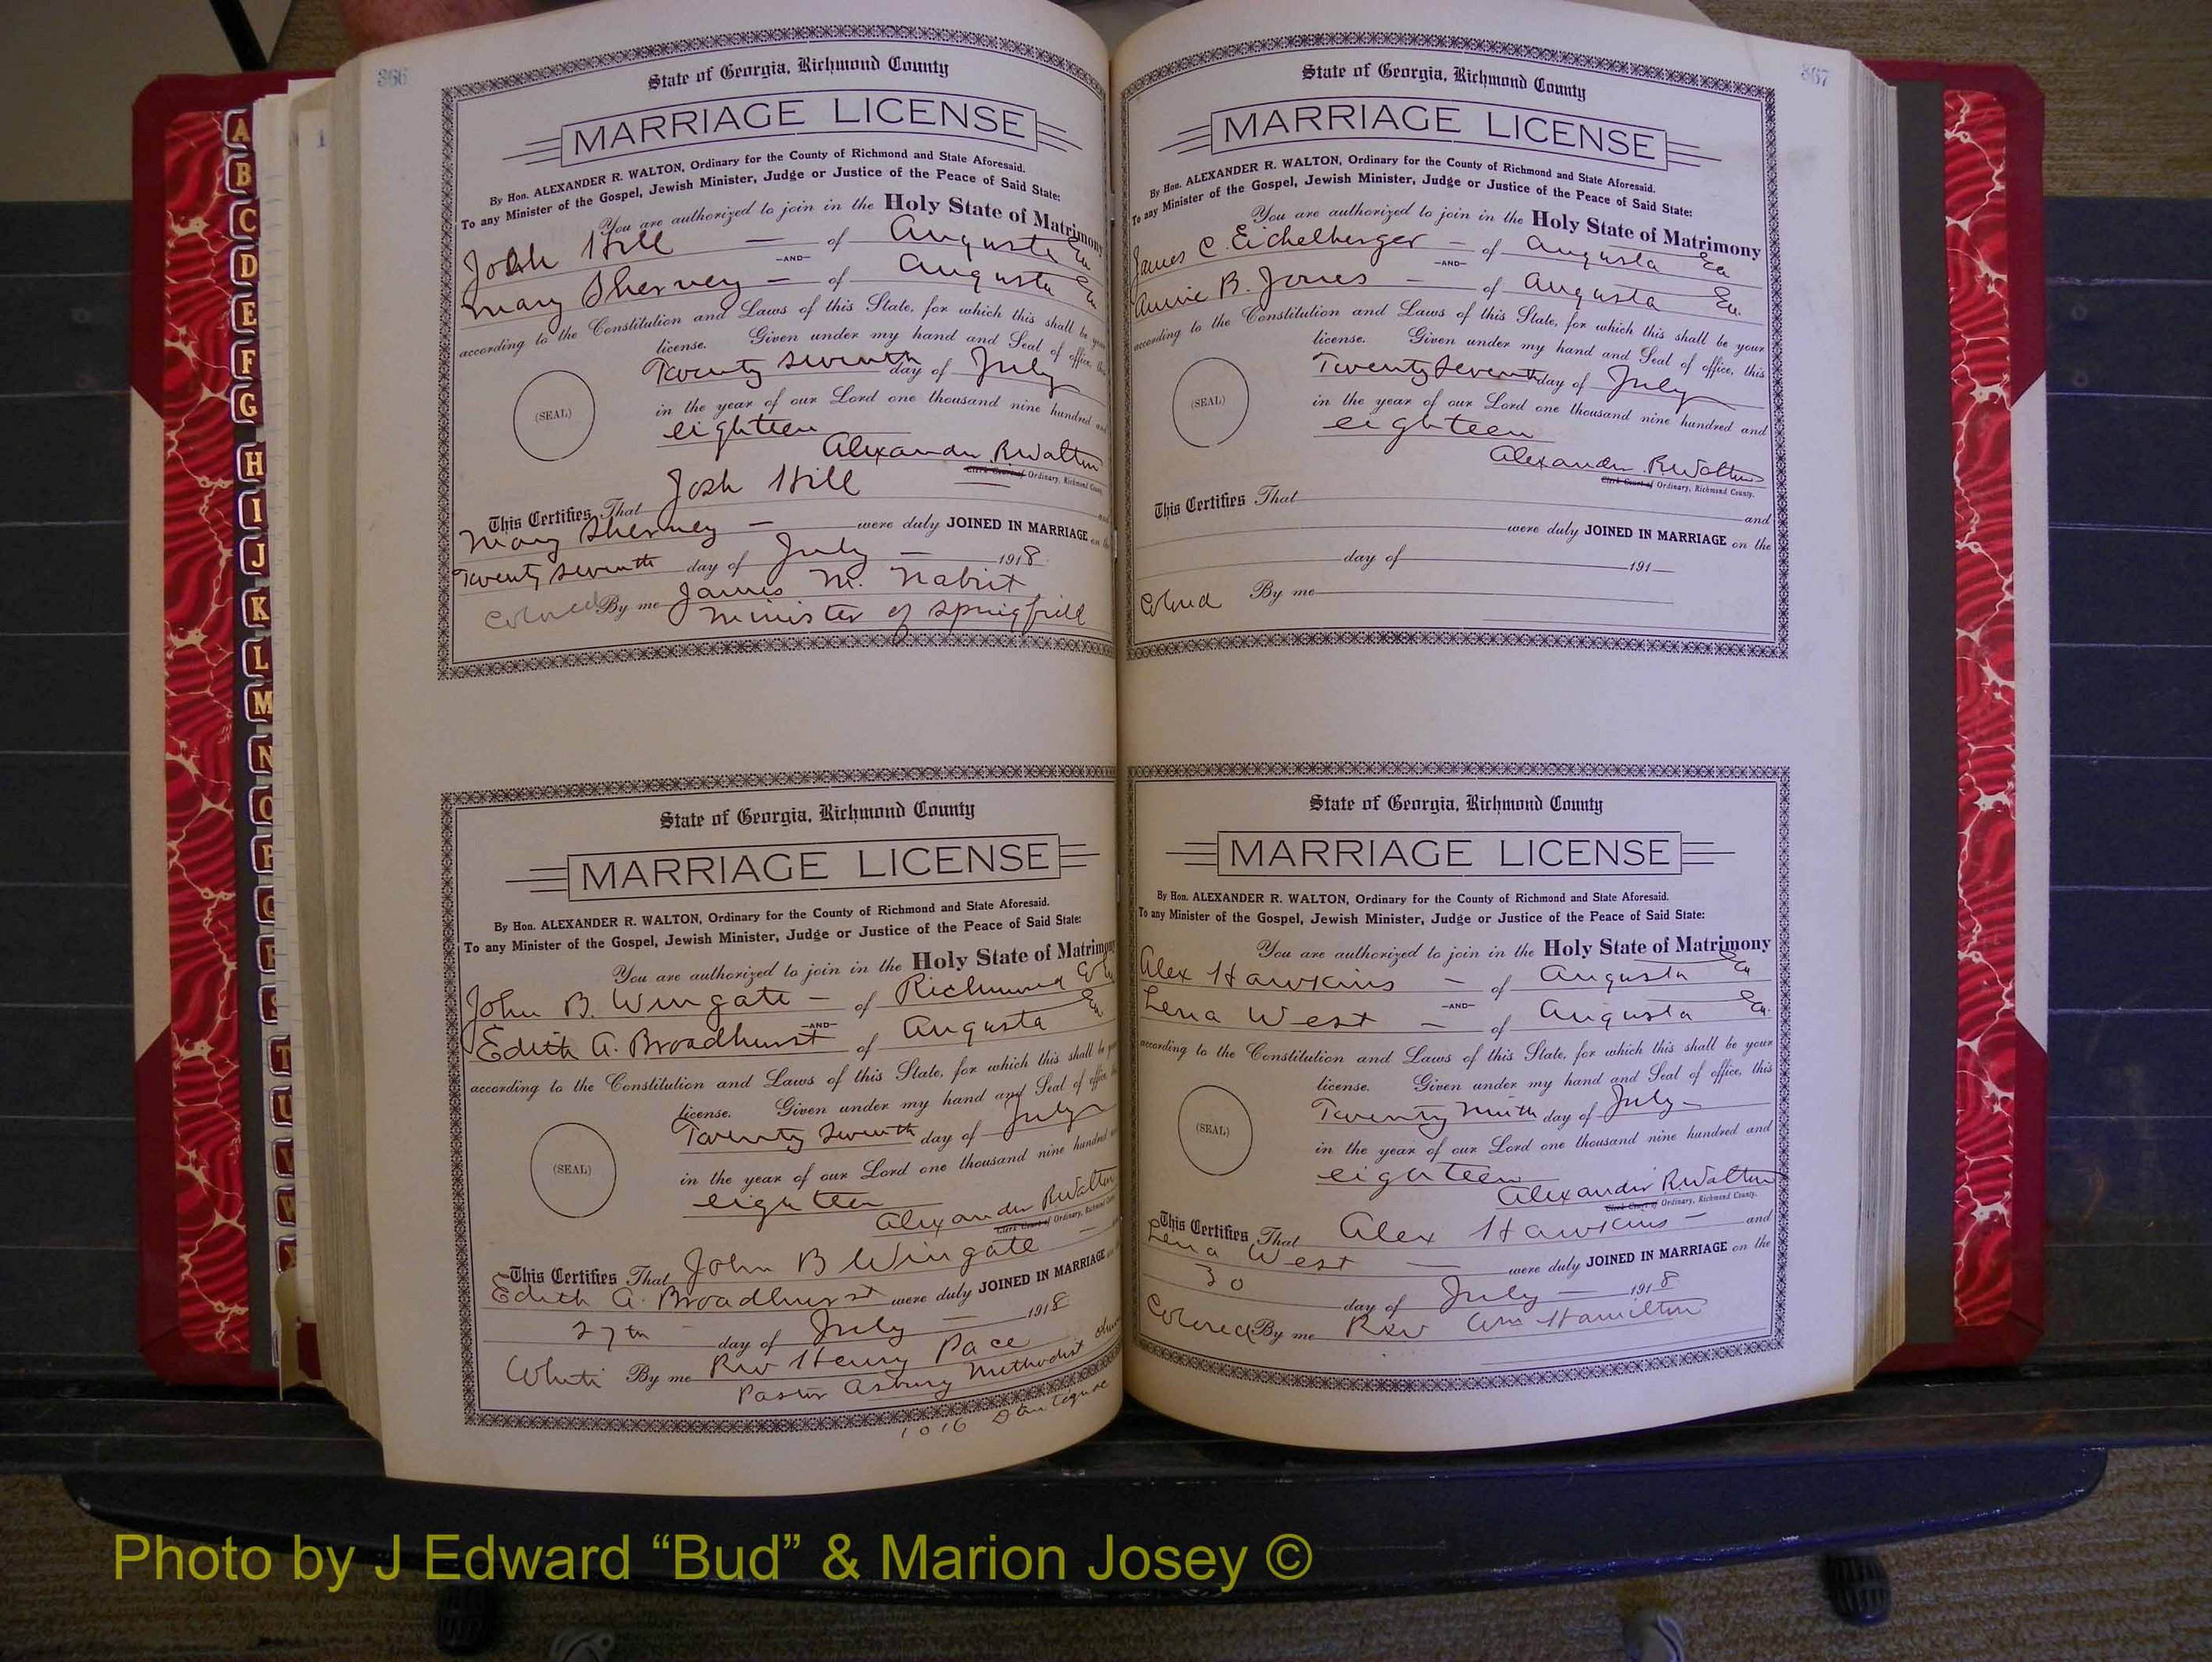 866
State of Georgia, Richmond County
MARRIAGE LICENSE
By Hon. ALEXANDER R. WALTON, Ordinary for the County of Richmond and State Aforesaid.
To any Minister of the Gospel, Jewish Minister, Judge or Justice of the Peace of Said State:
You are authorized to join in the Holy State of Matrimony
Josh Hill — of Augusta Ga
—AND—
Mary Sherney — of Augusta Ga
according to the Constitution and Laws of this State, for which this shall be your
license. Given under my hand and Seal of office, this
Twenty seventh day of July
(SEAL)
in the year of our Lord one thousand nine hundred and
eighteen
Alexander R Walton
Clerk Court of Ordinary, Richmond County.
This Certifies That Josh Hill
Mary Sherney — were duly JOINED IN MARRIAGE on the
Twenty seventh day of July — 1918
Colored By me James M. Nabrit
Minister of Springfield
State of Georgia, Richmond County
MARRIAGE LICENSE
By Hon. ALEXANDER R. WALTON, Ordinary for the County of Richmond and State Aforesaid.
To any Minister of the Gospel, Jewish Minister, Judge or Justice of the Peace of Said State:
You are authorized to join in the Holy State of Matrimony
John B. Wingate — of Richmond Co
—AND—
Edith A. Broadhurst of Augusta Ga
according to the Constitution and Laws of this State, for which this shall be your
license. Given under my hand and Seal of office, this
Twenty seventh day of July
(SEAL)
in the year of our Lord one thousand nine hundred
eighteen
Alexander R Walton
Clerk Court of Ordinary, Richmond County.
This Certifies That John B Wingate
Edith A. Broadhurst were duly JOINED IN MARRIAGE on
27th day of July — 1918
White By me Rev Henry Pace
Pastor Asbury Methodist
1016
867
State of Georgia, Richmond County
MARRIAGE LICENSE
By Hon. ALEXANDER R. WALTON, Ordinary for the County of Richmond and State Aforesaid.
To any Minister of the Gospel, Jewish Minister, Judge or Justice of the Peace of Said State:
You are authorized to join in the Holy State of Matrimony
James C. Eichelberger — of Augusta Ga
—AND—
Annie B. Jones — of Augusta Ga.
according to the Constitution and Laws of this State, for which this shall be your
license. Given under my hand and Seal of office, this
Twenty Seventh day of July
(SEAL)
in the year of our Lord one thousand nine hundred and
eighteen
Alexander R Walton
Clerk Court of Ordinary, Richmond County.
This Certifies That
and
were duly JOINED IN MARRIAGE on the
day of 191
Colored By me
State of Georgia, Richmond County
MARRIAGE LICENSE
By Hon. ALEXANDER R. WALTON, Ordinary for the County of Richmond and State Aforesaid.
To any Minister of the Gospel, Jewish Minister, Judge or Justice of the Peace of Said State:
You are authorized to join in the Holy State of Matrimony
Alex Hawkins — of Augusta Ga
—AND—
Lena West — of Augusta Ga.
according to the Constitution and Laws of this State, for which this shall be your
license. Given under my hand and Seal of office, this
Twenty Ninth day of July
(SEAL)
in the year of our Lord one thousand nine hundred and
eighteen
Alexander R Walton
Clerk Court of Ordinary, Richmond County.
This Certifies That Alex Hawkins — and
Lena West — were duly JOINED IN MARRIAGE on the
30 day of July — 1918
Colored By me Rev Wm Hamilton
A
B
C
D
E
F
G
H
I
J
K
L
M
N
O
P
Q
R
S
T
U
V
W
Photo by J Edward “Bud” & Marion Josey ©